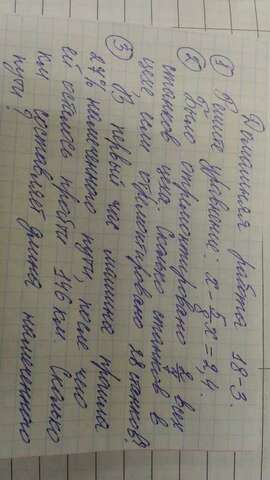 Домашняя работа 18-3.
① Решите уравнение: x - x = 2,4.
② Было отремонтировано всех
станков цеха. Сколько станков в
цехе если отремонтировано 28 станков?
③ В первый час машина прошла
27% намеченного пути, после чего
ей осталось пройти 146 км. Сколько
км составляет длина намеченного
пути?